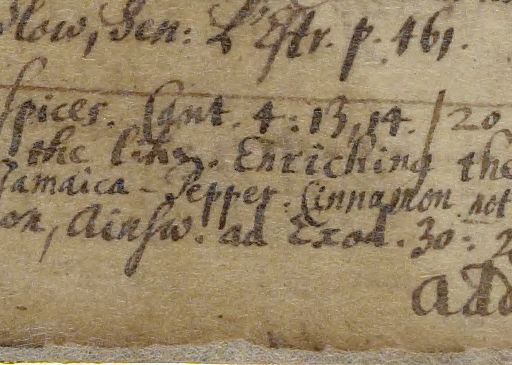 slow, Sen: L'Estr. p. 161.
spices. Cant. 4: 13, 14. / 20
the line. Enriching the
Jamaica-Pepper. Cinnamon not
on, Ainsw. ad Exod. 30: 2
Add